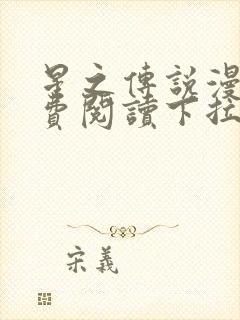 星之傳說漫
費閱讀下拉
宋義